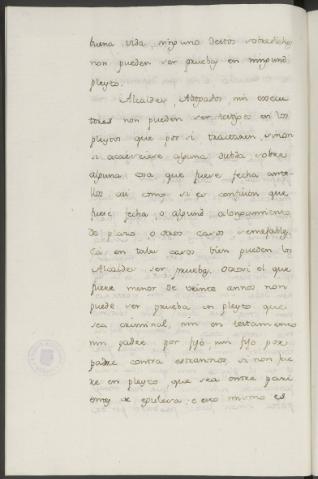 buena vida, ninguno destos sobredichos
non pueden ser prueba en ningund
pleyto.
Alcaldes Abogados nin execu
tores non pueden ser testigos en los
pleytos que por si tractaren, sinon
si acaesciere alguna dubda sobre
alguna cosa que fuere fecha ante
llos asi como si es confision que
fuese fecha o algund alongamiento
de plazo o otros casos semejables
Ca en tales casos bien pueden los
Alcaldes ser prueba, otrosi el que
fuere menor de veinte annos non
puede ser prueba en pleyto que
sea criminal, nin en testamento
nin padre por fijo, nin fijo por
padre contra estrannos, si non fue
re en pleyto que sea entre pari
entes de egualeza, e eso mismo es